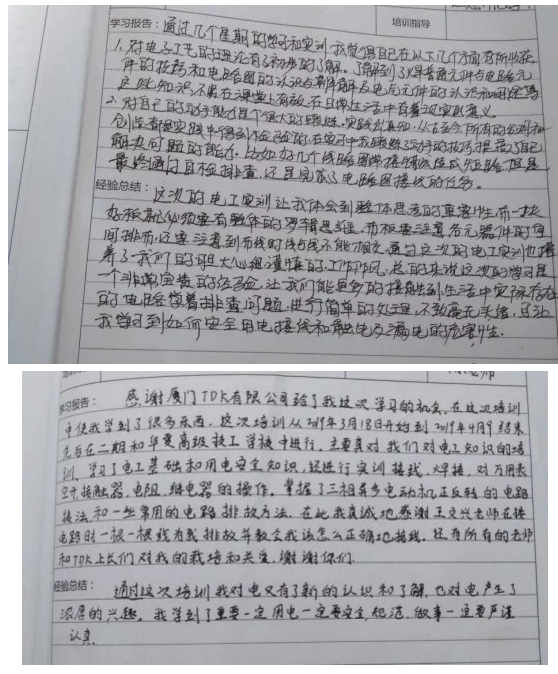 学习报告：通过几个星期的学习和实训，我觉得自己在以下几个方面有所收获
培训指导
1.对电子工艺的理论有了初步的了解。了解到了焊普通元件与电路元
件的技巧和电路图的认识与制作
这些知识不仅在课堂上有效，在日常生活中有着现实意义
2.对自己的动手能力是个很大的锻炼。实践出真知，从古至今所有的
创造都是实践中得到检验的，在实习中我锻炼了动手的技巧，提高了自己
解决问题的能力。比如好几个线路图焊接线造成短路，但是
最终通过自检排查，还是完成了电路图接线的任务。
经验总结：这次的电工实训让我体会到整体思考的重要性，而一块
好板就必须要有整体的逻辑思维，而板要注意各元器件的空
间排布，还要注意到布线时线与线不能相交，再与这次的电工实训也培
养了我们的胆大心细谨慎的工作作风，总的来说这次的学习是
一个非常宝贵的经验，让我们能更多的接触到生活中实际存在
的电路学着排查问题，进行简单的处理，不致毫无头绪，还让
我学习到如何安全用电接线和触电及漏电的危害性.
学习报告：感谢厦门TDK有限公司给了我这次学习的机会，在这次培训
中使我学到了很多东西，这次培训从2019年3月18日开始到2019年4月9结束
先后在二期和华夏高级技工学校中进行，主要真对我们对电工知识的培
训，学习了电工基础和用电安全知识，还进行实训接线，焊接，对万用表
空开接触器，电阻，继电器的操作。掌握了三相异步电动机正反转的电路
接法和一些常用的电路排故方法，在此我真诚地感谢王文兴老师在接
电路时一根一根线为我排故并教会我该怎么正确地接线。还有所有的老师
和TDK上长们对我的栽培和关爱，谢谢你们.
经验总结：通过这次培训我对电又有了新的认识和了解，也对电产生了
浓厚的兴趣，我学到了重要一定用电一定要安全，规范，做事一定要严谨
认真